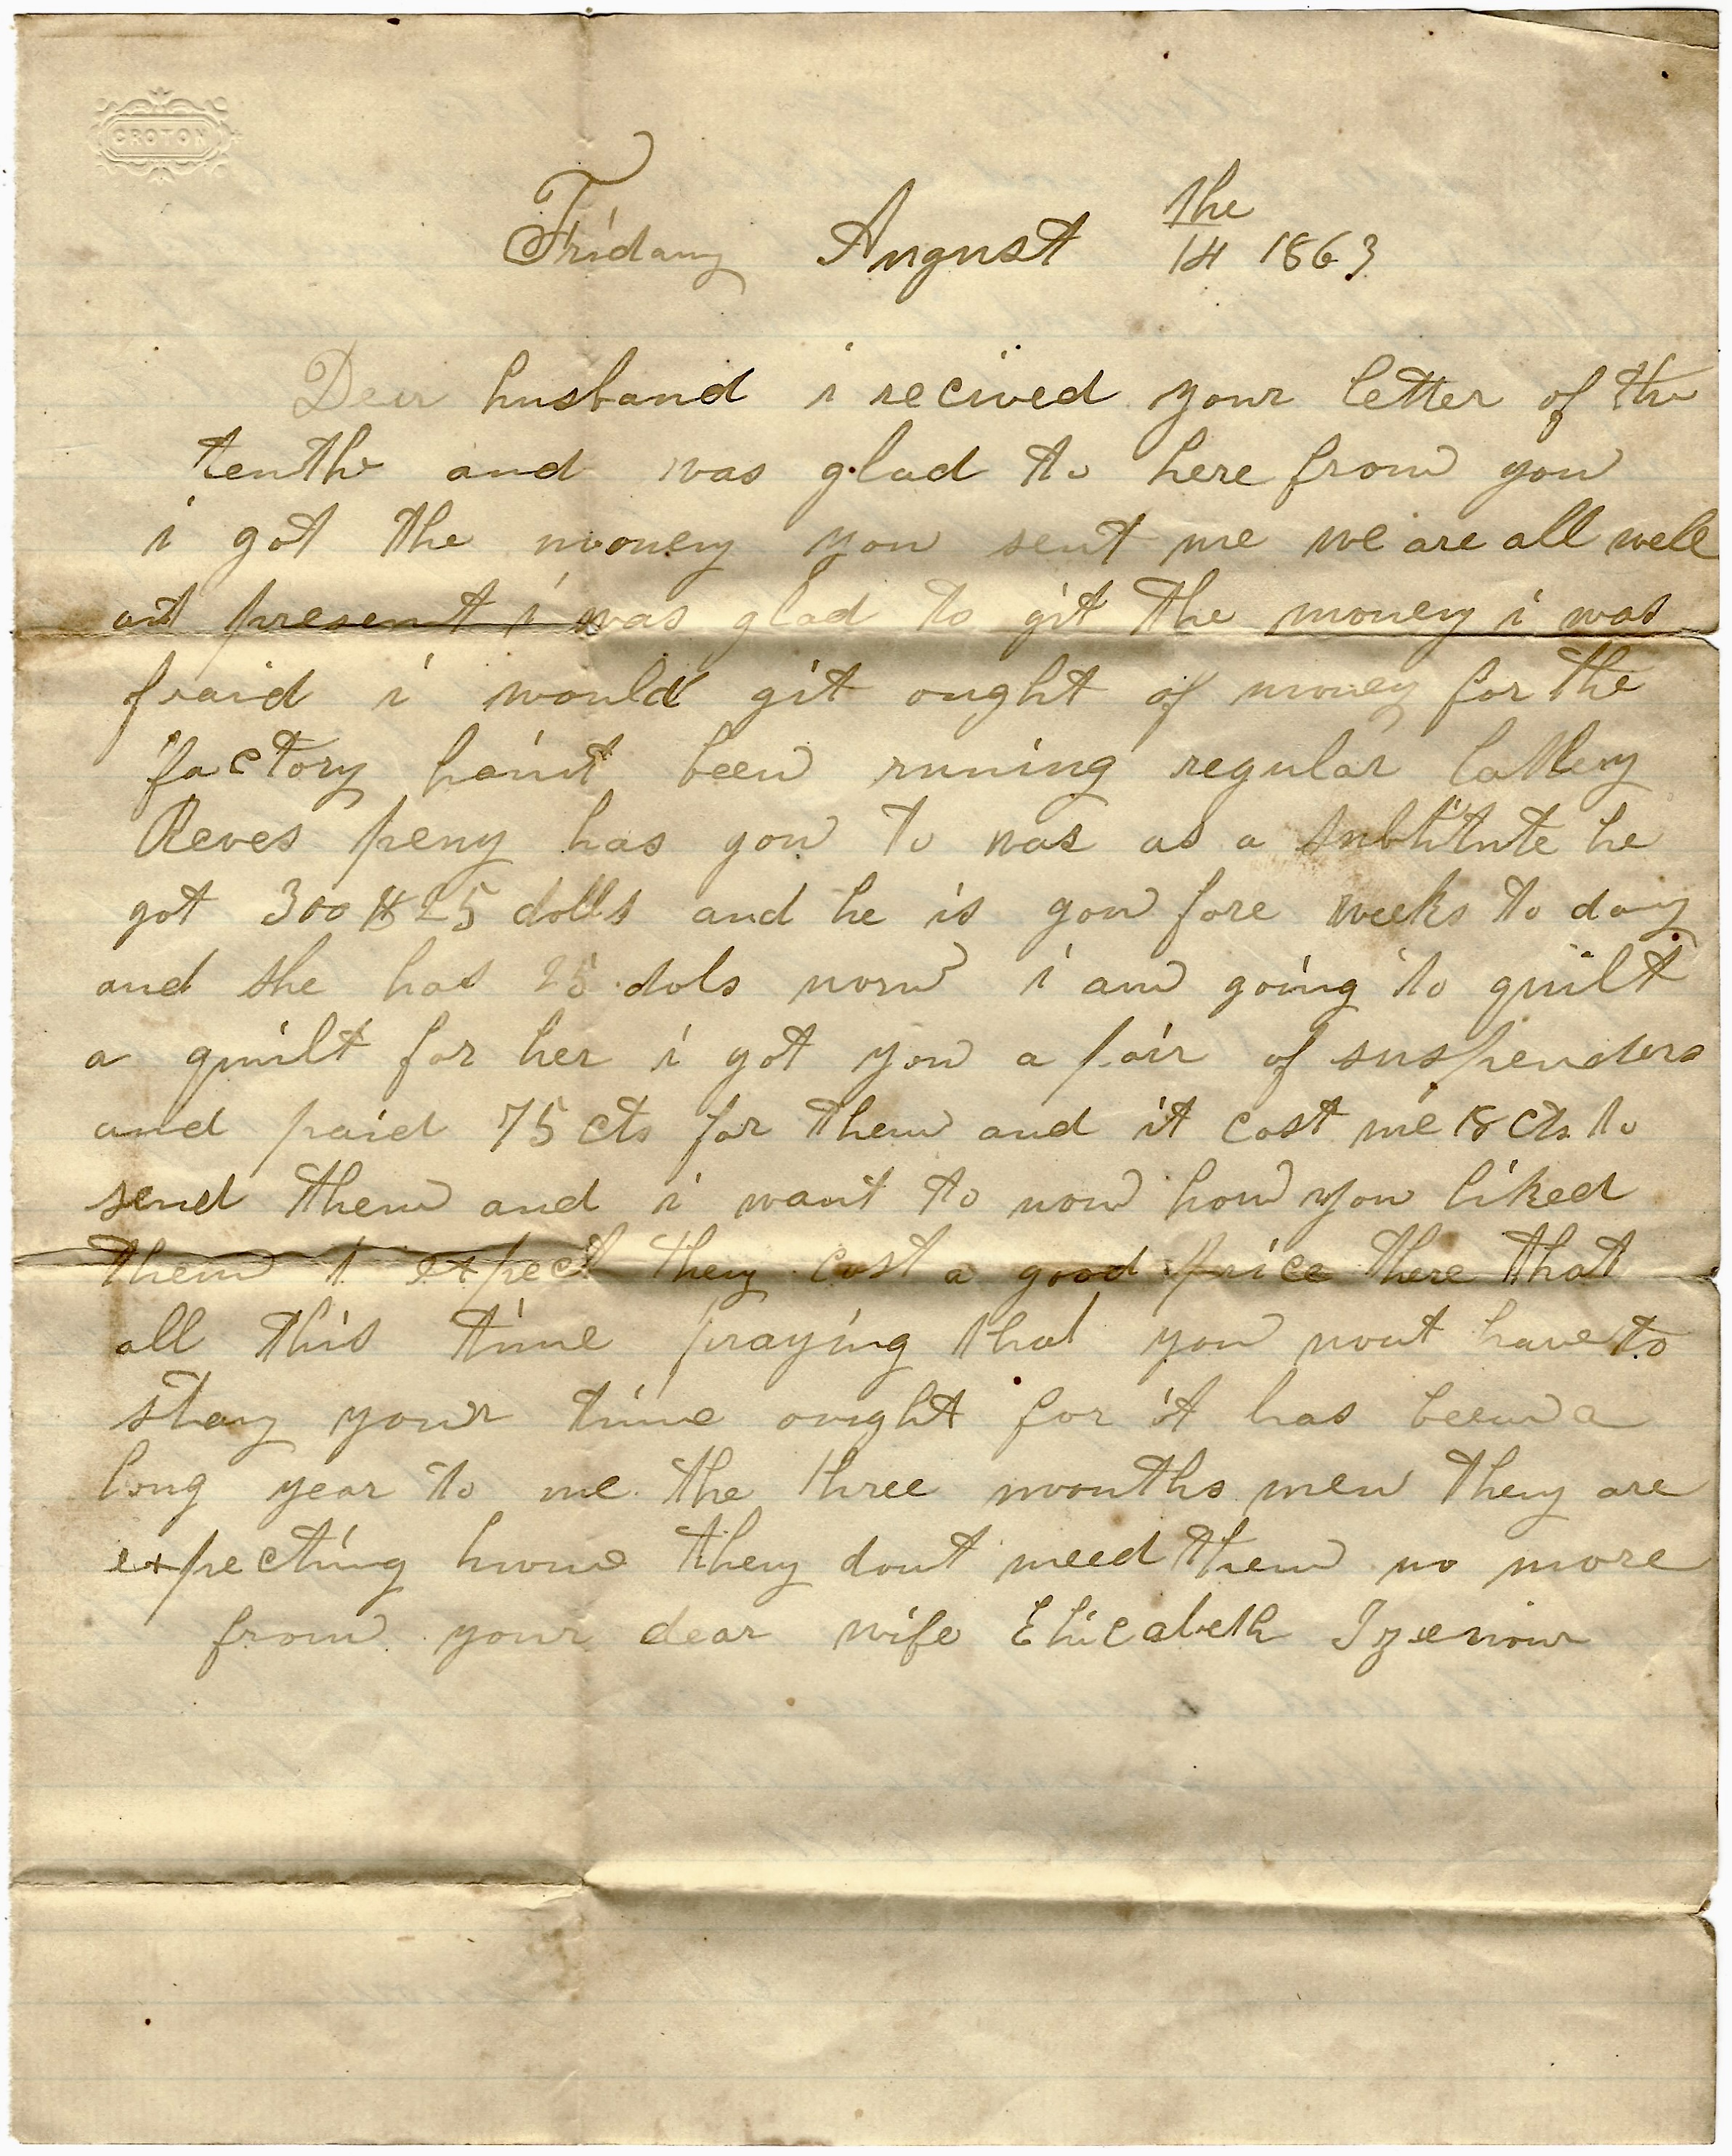 CROTON
the
Friday August 14 1863
Dear husband i recived your letter of the
tenth and was glad to here from you
i got the money you sent me we are all well
at present i was glad to git the money i was
fraid i would git ought of money for the
factory haint been runing regular lattley
Reves peny has gon to was as a subtitute he
got 300 & 25 dolls and he is gon fore weeks to day
and she has 25 dols now i am going to quilt
a quilt for her i got you a pair of suspenders
and paid 75 cts for them and it cost me 18 cts to
send them and i want to now how you liked
them i expect they cost a good price there that
all this time praying that you wont have to
stay your time ought for it has been a
long year to me the three months men they are
expecting home they dont need them no more
from your dear wife Elizabeth